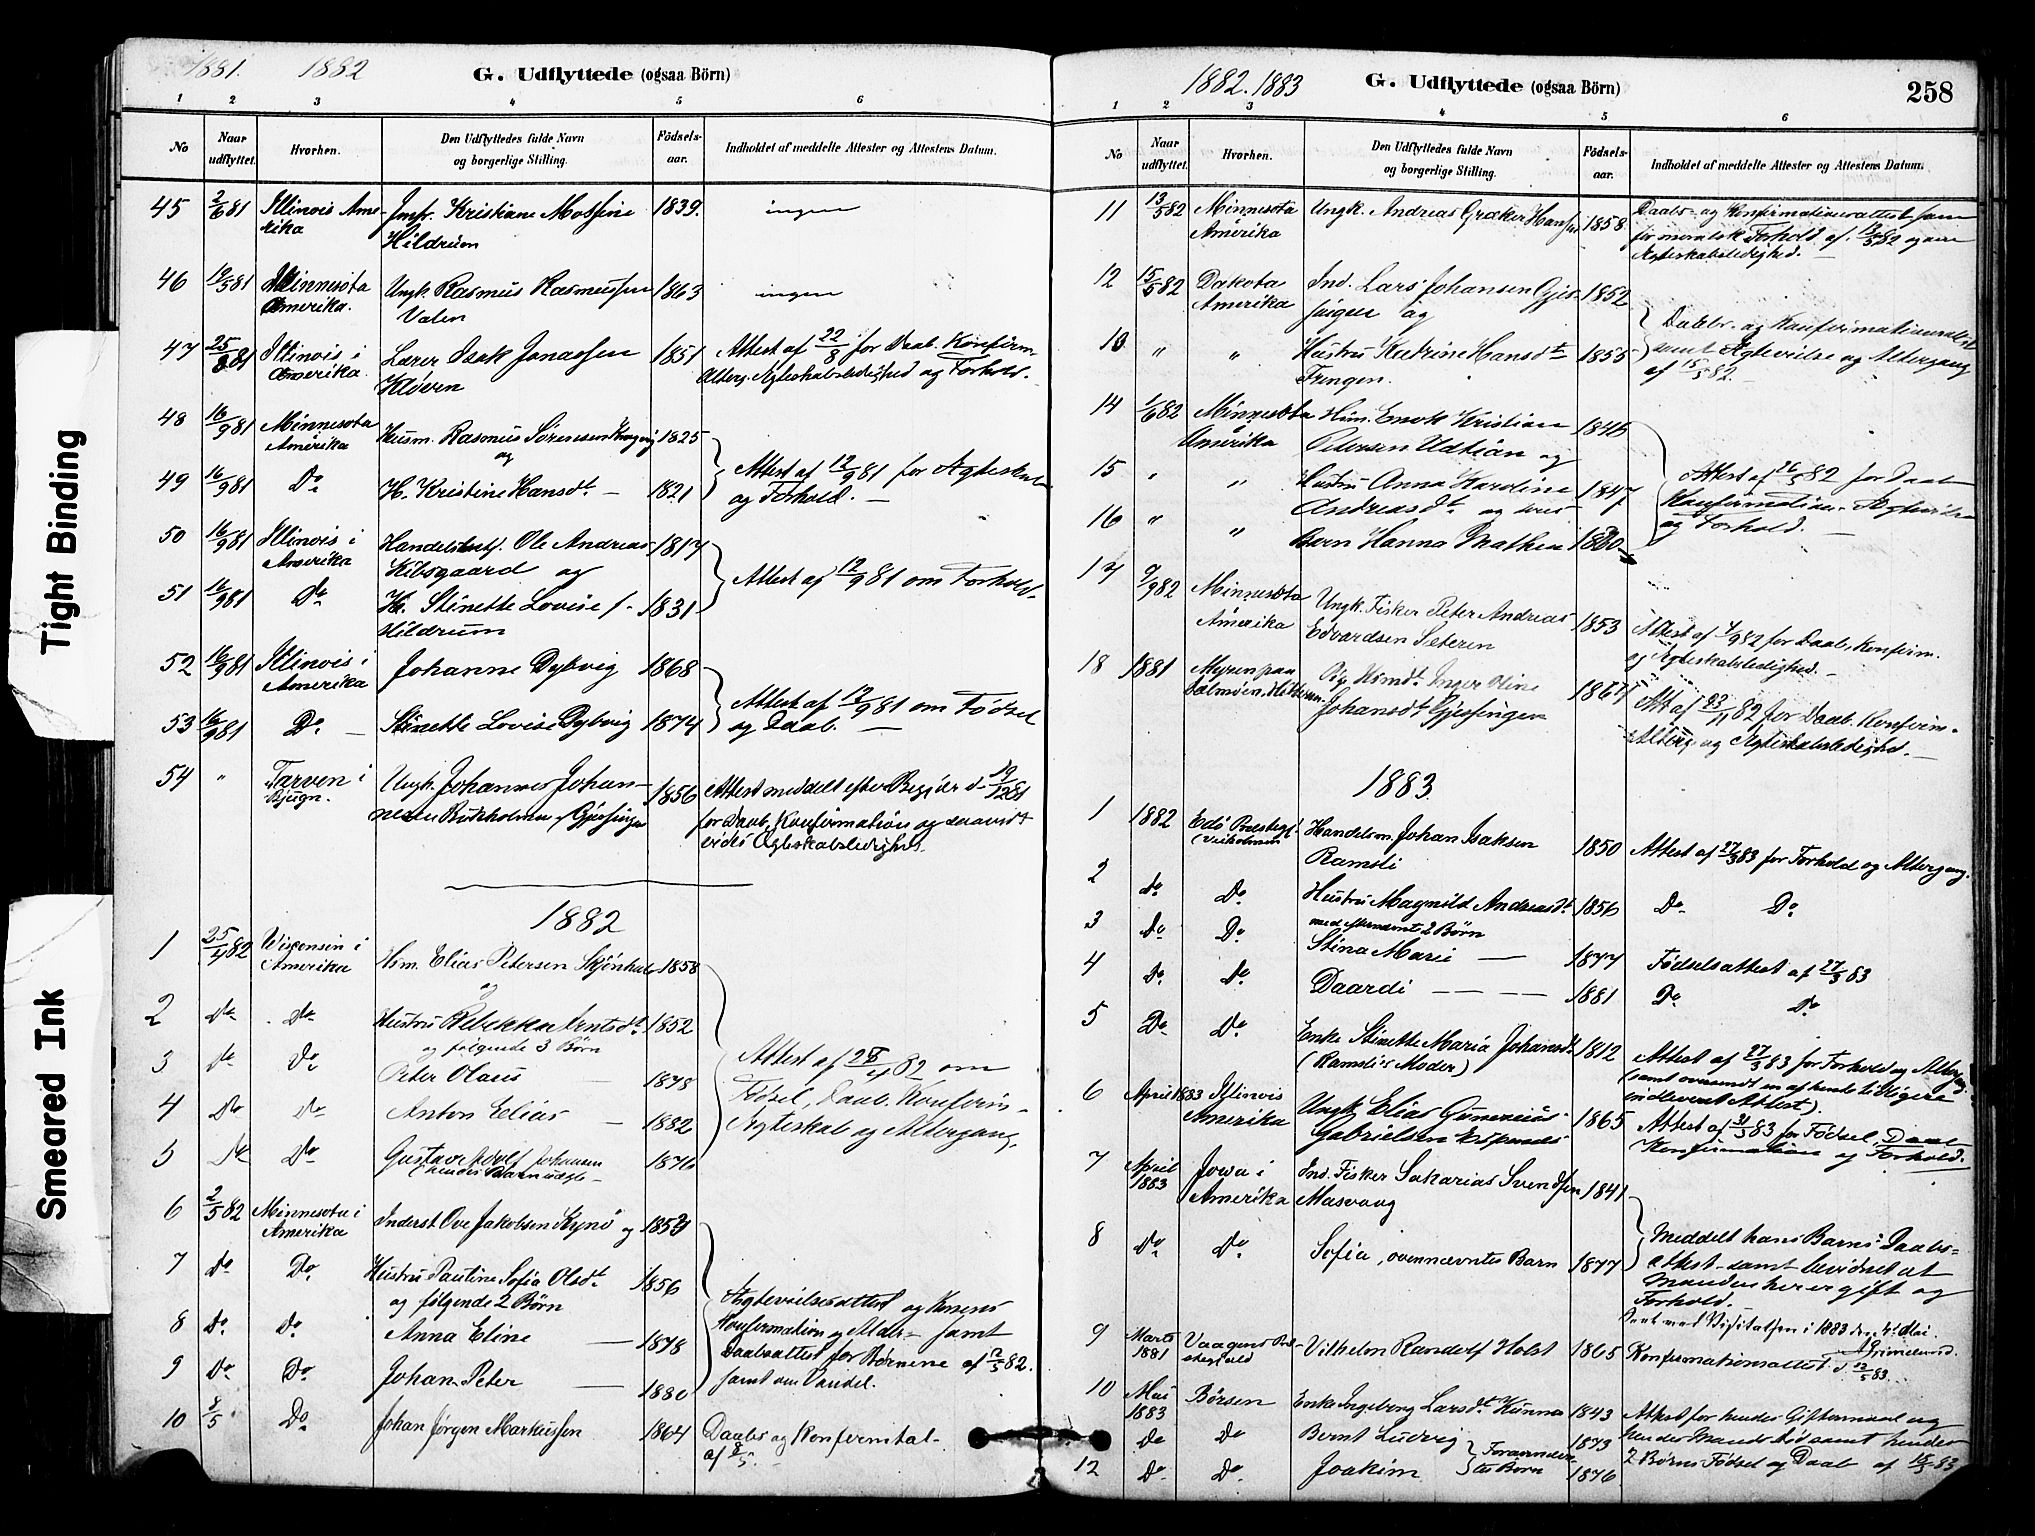 Tight Binding
Smeared Ink
1881. 1882 G. Udflyttede (ogsaa Börn)
1 2 3 4 5 6
No Naar udflyttet. Hvorhen. Den Udflyttedes fulde Navn og borgerlige Stilling. Födsels-aar. Indholdet af meddelte Attester og Attestens Datum.
45 2/6 81 Illinois Ame- Jmfr. Kristiane 1839. ingen
rika Hildrum
46 12/5 81 Minnesota Ungk. Rasmus Rasmussen 1863 ingen
Amerika. Valen
47 25/8 81 Illinois i Lærer Isak Jonassen 1851 Attest af 22/8 for Daab, Konfirm.
Amerika. Kløven Alterg. Ægteskabsledighed og Forhold.
48 16/9 81 Minnesota Husm. Rasmus Sørensen 1825
Amerika og
49 16/9 81 Do H. Kristine Hansdt. 1821 Attest af 12/9 81 for Ægteskab
og Forhold.
50 16/9 81 Illinois i Ole Andreas 1817
Amerika Kibsgaard og
51 16/9 81 Do H. Stinette Lovise f. 1831 Attest af 12/9 81 om Forhold.
Hildrum
52 16/9 81 Illinois i Johanne Dybvig 1868
Amerika
53 16/9 81 Do Stinette Lovise Dybvig 1874 Attest af 12/9 81 om Fødsel
og Daab.
54 " Tarven i Ungk. Johannes Johan- 1856 Attest meddelt efter Begjær d. 19/12 81
Bjugn. nesen Gjessingen for Daab, Konfirmation og
Ægteskabsledighed.
1882
1 25/4 82 Wisconsin i Hsm. Elias Petersen 1858
Amerika og
2 Do Do Hustru Rebekka Arntsdt. 1852
og følgende 3 Børn
3 Do Do Peter Olaus 1878 Attest af 28/4 82 om
4 Do Do Anton Elias 1882 Fødsel, Daab, Konfirm-
Ægteskab og Altergang.
5 Do Do Gustav Adolf Johansen 1876
6 2/5 82 Minnesota i Inderst Ove Jakobsen og
Amerika
7 Do Do Hustru Pauline Sofia Olsdt. 1856
og følgende 2 Børn
8 Do Do Anna Eline 1878 Konfirmation og samt
9 Do Do Johan Peter 1880 Daabsattest for Børnene af 2/5 82.
samt om Vandel.
10 8/5 Do Johan Jørgen Markussen 1864 Daabs og Konfirmtal-
af 8/5.
1882. 1883 G. Udflyttede (ogsaa Börn) 258
1 2 3 4 5 6
No Naar udflyttet. Hvorhen. Den Udflyttedes fulde Navn og borgerlige Stilling. Födsels-aar. Indholdet af meddelte Attester og Attestens Datum.
11 13/5 82 Minnesota Ungk. Andreas Hansen 1858. Daabs- og Konfirmationsattest
Amerika for moralsk Forhold af 13/5 82 og
Ægteskabsledighed.
12 15/5 82 Dakota Ind. Lars Johansen Gjes- 1852
Amerika singen og
13 " " Hustru Katrine Hansdt. 1855 Daabs- og Konfirmationsattest
samt Ægtevielse og Altergang
af 15/5 82.
14 1/6 82 Minnesota Kristian
Amerika Petersen og
15 " " Hustru Anna Karoline 1847 Attest af 26/5 82 for Daab
Andreasdt. og Konfirmation, Ægtevielse
16 " " Barn Hanna Mathea 1880 og Forhold.
17 9/9 82 Minnesota Ungk. Fisker Peter Andreas 1853 Attest af 4/9 82 for Daab, Konfirm.
Amerika Edvardsen Sæteren og Ægteskabsledighed.
18 1881 Myren paa Inger Oline Att. af 23/11 82 for Daab, Konfirm.
Johansdt. Gjessingen Alterg. og Ægteskabsledighed.
1883
1 1882 Edø Præstegj. Handelsm. Johan Isaksen 1850 Attest af 27/3 83 for Forhold og Altergang.
(Veiholmen Ramsli
2 Do Do Hustru Magnild Andreasdt. 1856 Do Do
2 Børn
3 Do Do Stina Marie 1877 Fødselsattest af 27/3 83
4 Do Do Daardi 1881 Do Do
5 Do Do Enke Stinette Maria Johansdt. 1812 Attest af 27/3 83 for Forhold og Alterg.
(Ramsli's Moder) (samt oversendt en af hende tidligere
indleveret Attest).
6 April 1883 Illinois Ungk. Elias Gunnerius 1865 Attest af 31/3 83 for Fødsel, Daab
Amerika Gabrielsen Konfirmation og Forhold.
7 April 1883 Jowa i Ind. Fisker Sakarias Svendsen 1841
Amerika Masvaag
8 Do Do Sofia, ovennævntes Barn 1877 Meddelt hans Barns Daabs-
attest samt bevidnet at
Manden her er gift og
Forhold.
Visitatsen i 1883 den 4. Mai.
9 Marts 1881 Vaagens Præ- Vilhelm Randolf Holst 1865 Konfirmationsattest d. 12/5 83.
stegjeld
10 Mai 1883 Børsen Enke Ingeborg Larsdt. Kunna 1843 Attest for hendes Giftermaal og
Do Do Bernt Ludvig 1873 hendes Mands Død samt hendes
12 Do Do Joakim 1876 2 Børns Fødsel og Daab af